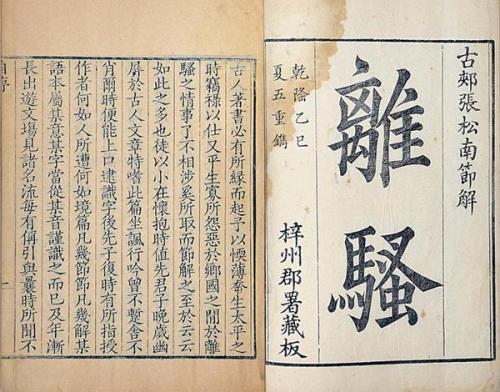 古郟張松南節解
離騷
乾隆乙巳
夏五重鐫
梓州郡署藏板
古人著書必有所緣而起予以愞薄幸生太平之
時竊祿以仕又平生寡所怨惡於鄉國之間於離
騷之情事了不相涉奚所取而節解之至於云云
如此之多也徒以小在懷抱時值先君子晚歲幽
屏於古人文章特嗜此篇坐諷行吟曾不暫舍不
肖爾時便能上口逮識字後先子復時有所指授
作者何如人所遭何如境篇凡幾節節凡幾解某
語本屬某意某字當從某音謹識之而已及年漸
長出遊文場見諸名流每有偁引與曩時所聞不